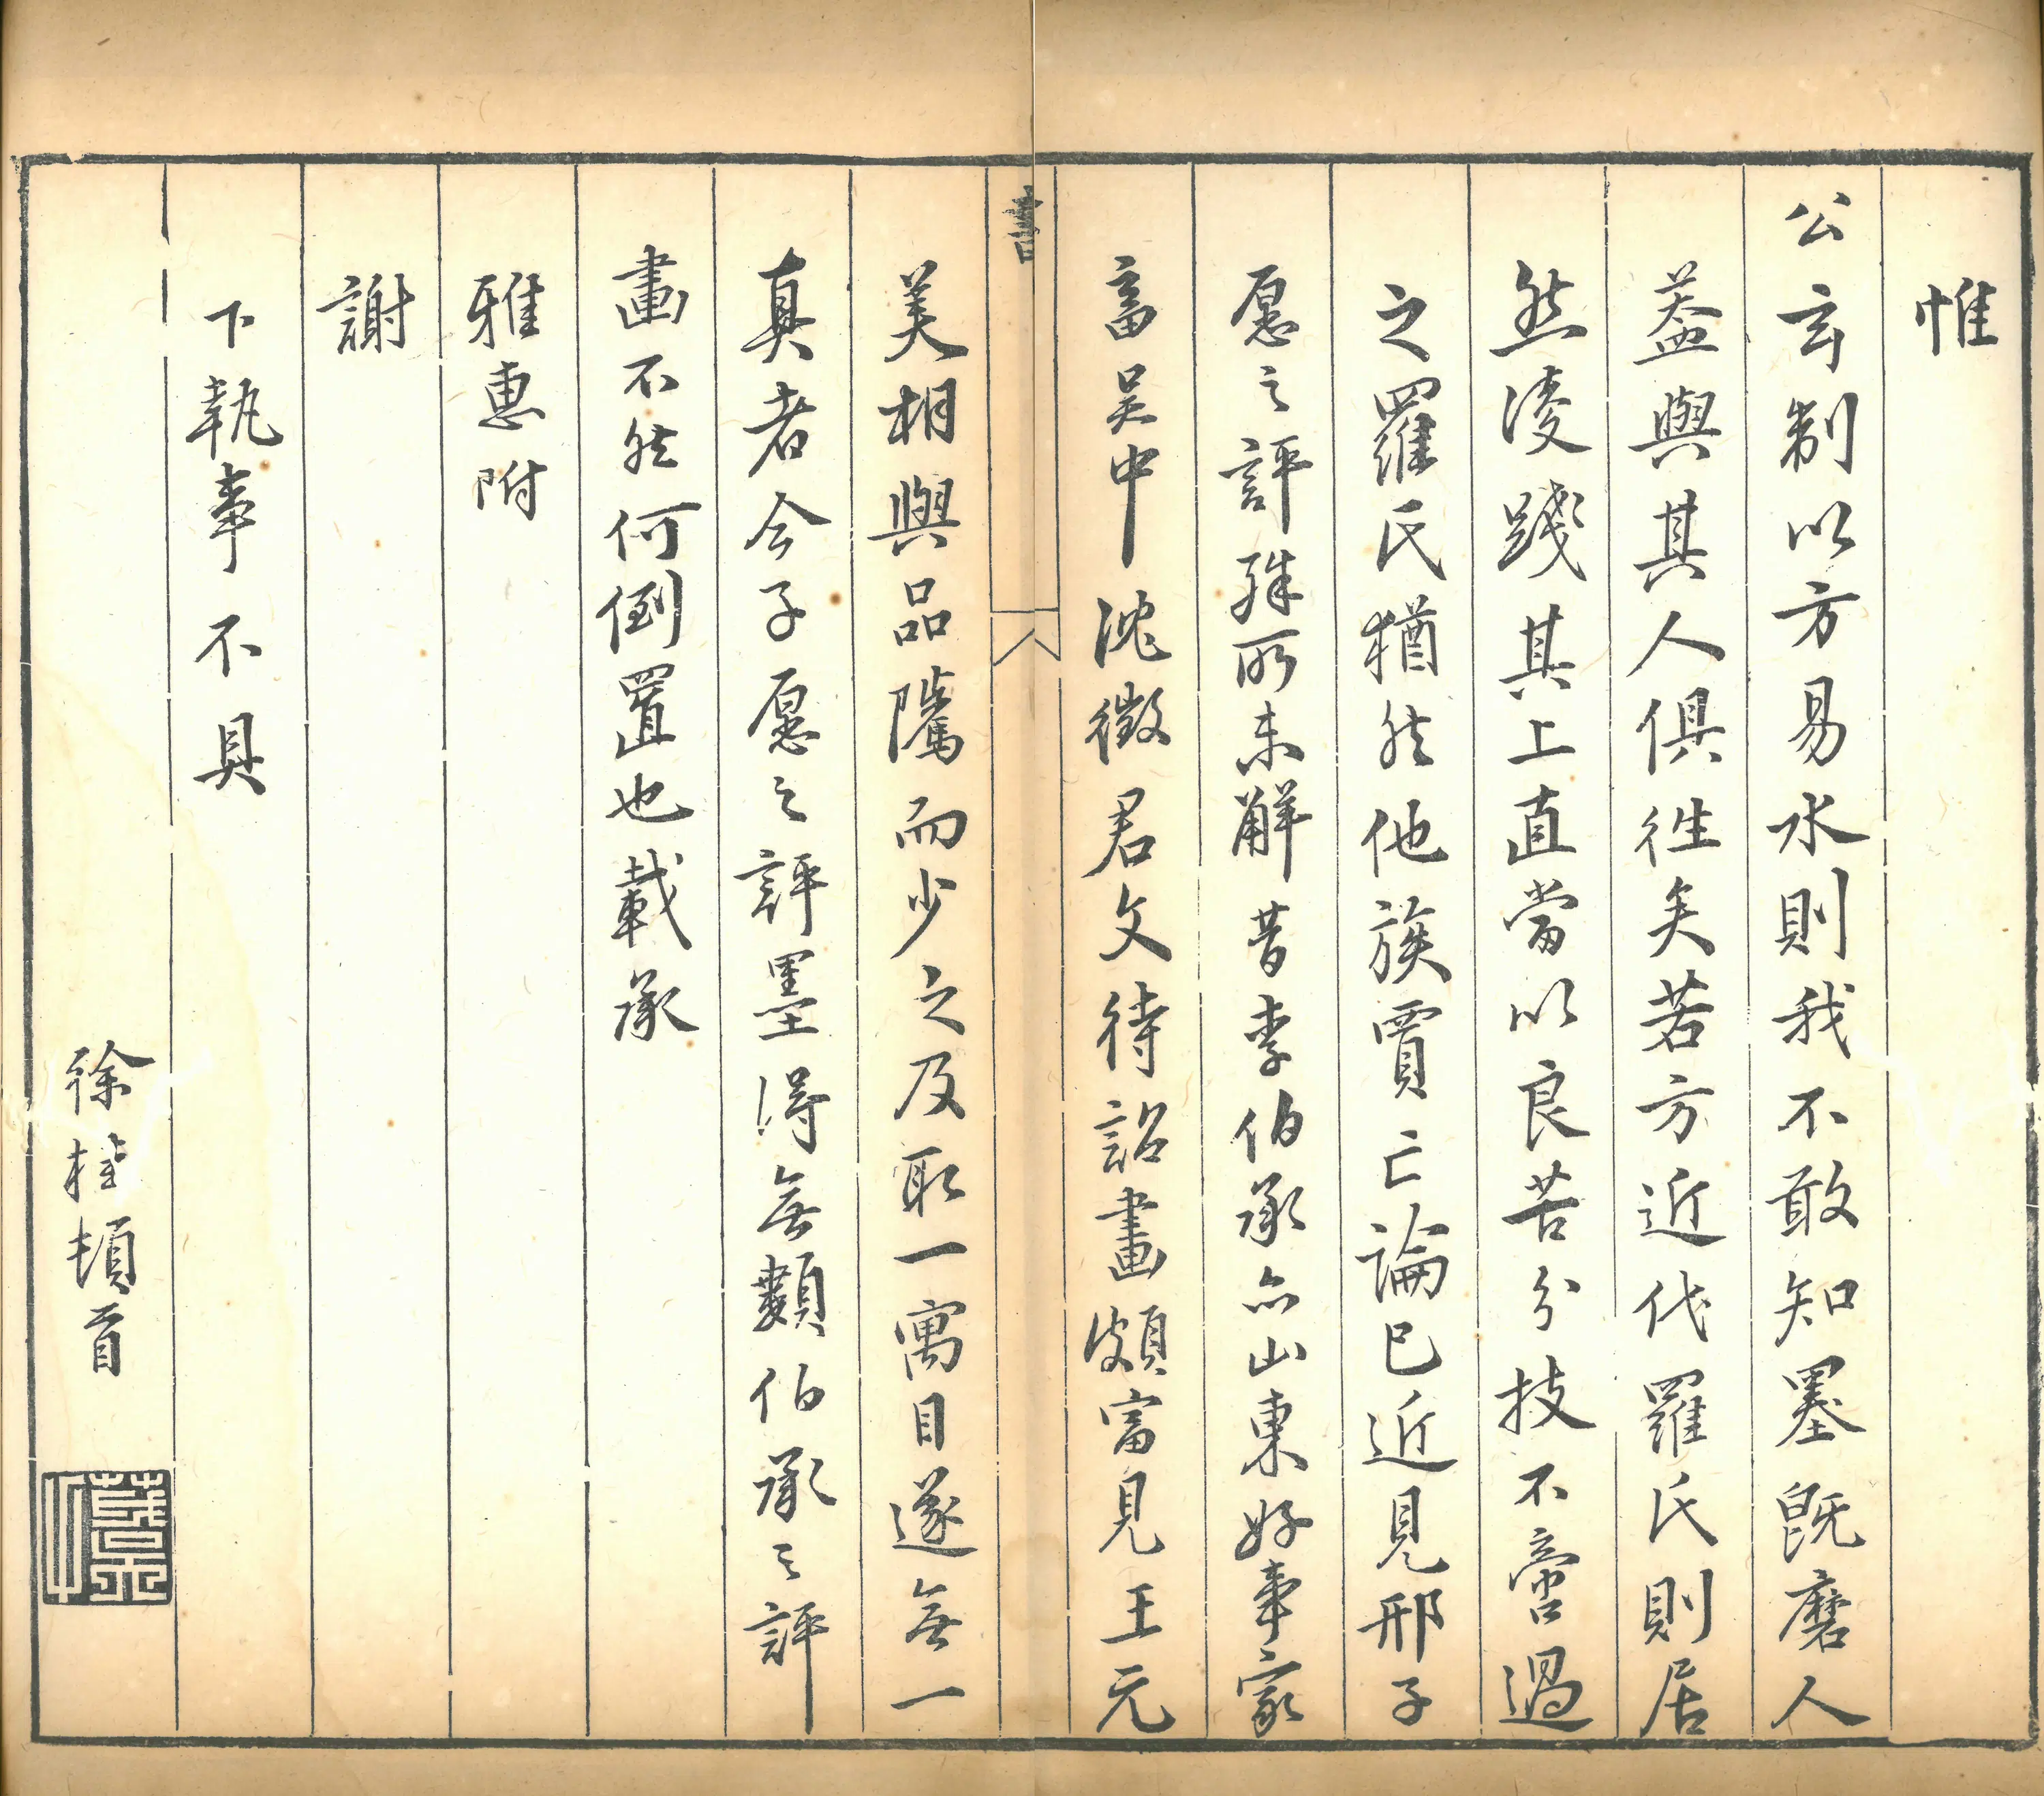 惟
公玄制以方易水則我不敢知墨既磨人
葢與其人俱徃矣若方近代羅氏則居
然淩踐其上直當以良苦分技不啻過
之羅氏猶然他族賈亡論已近見邢子
愿之評殊所未解昔李伯承亦山東好事家
畜吳中沈徵君文待詔畫頗富見王元
書
美相與品隲而少之及取一寓目遂無一
真者今子愿之評墨得無類伯承之評
畫不然何倒置也載承
雅惠附
謝
下執事不具
徐桂頓首